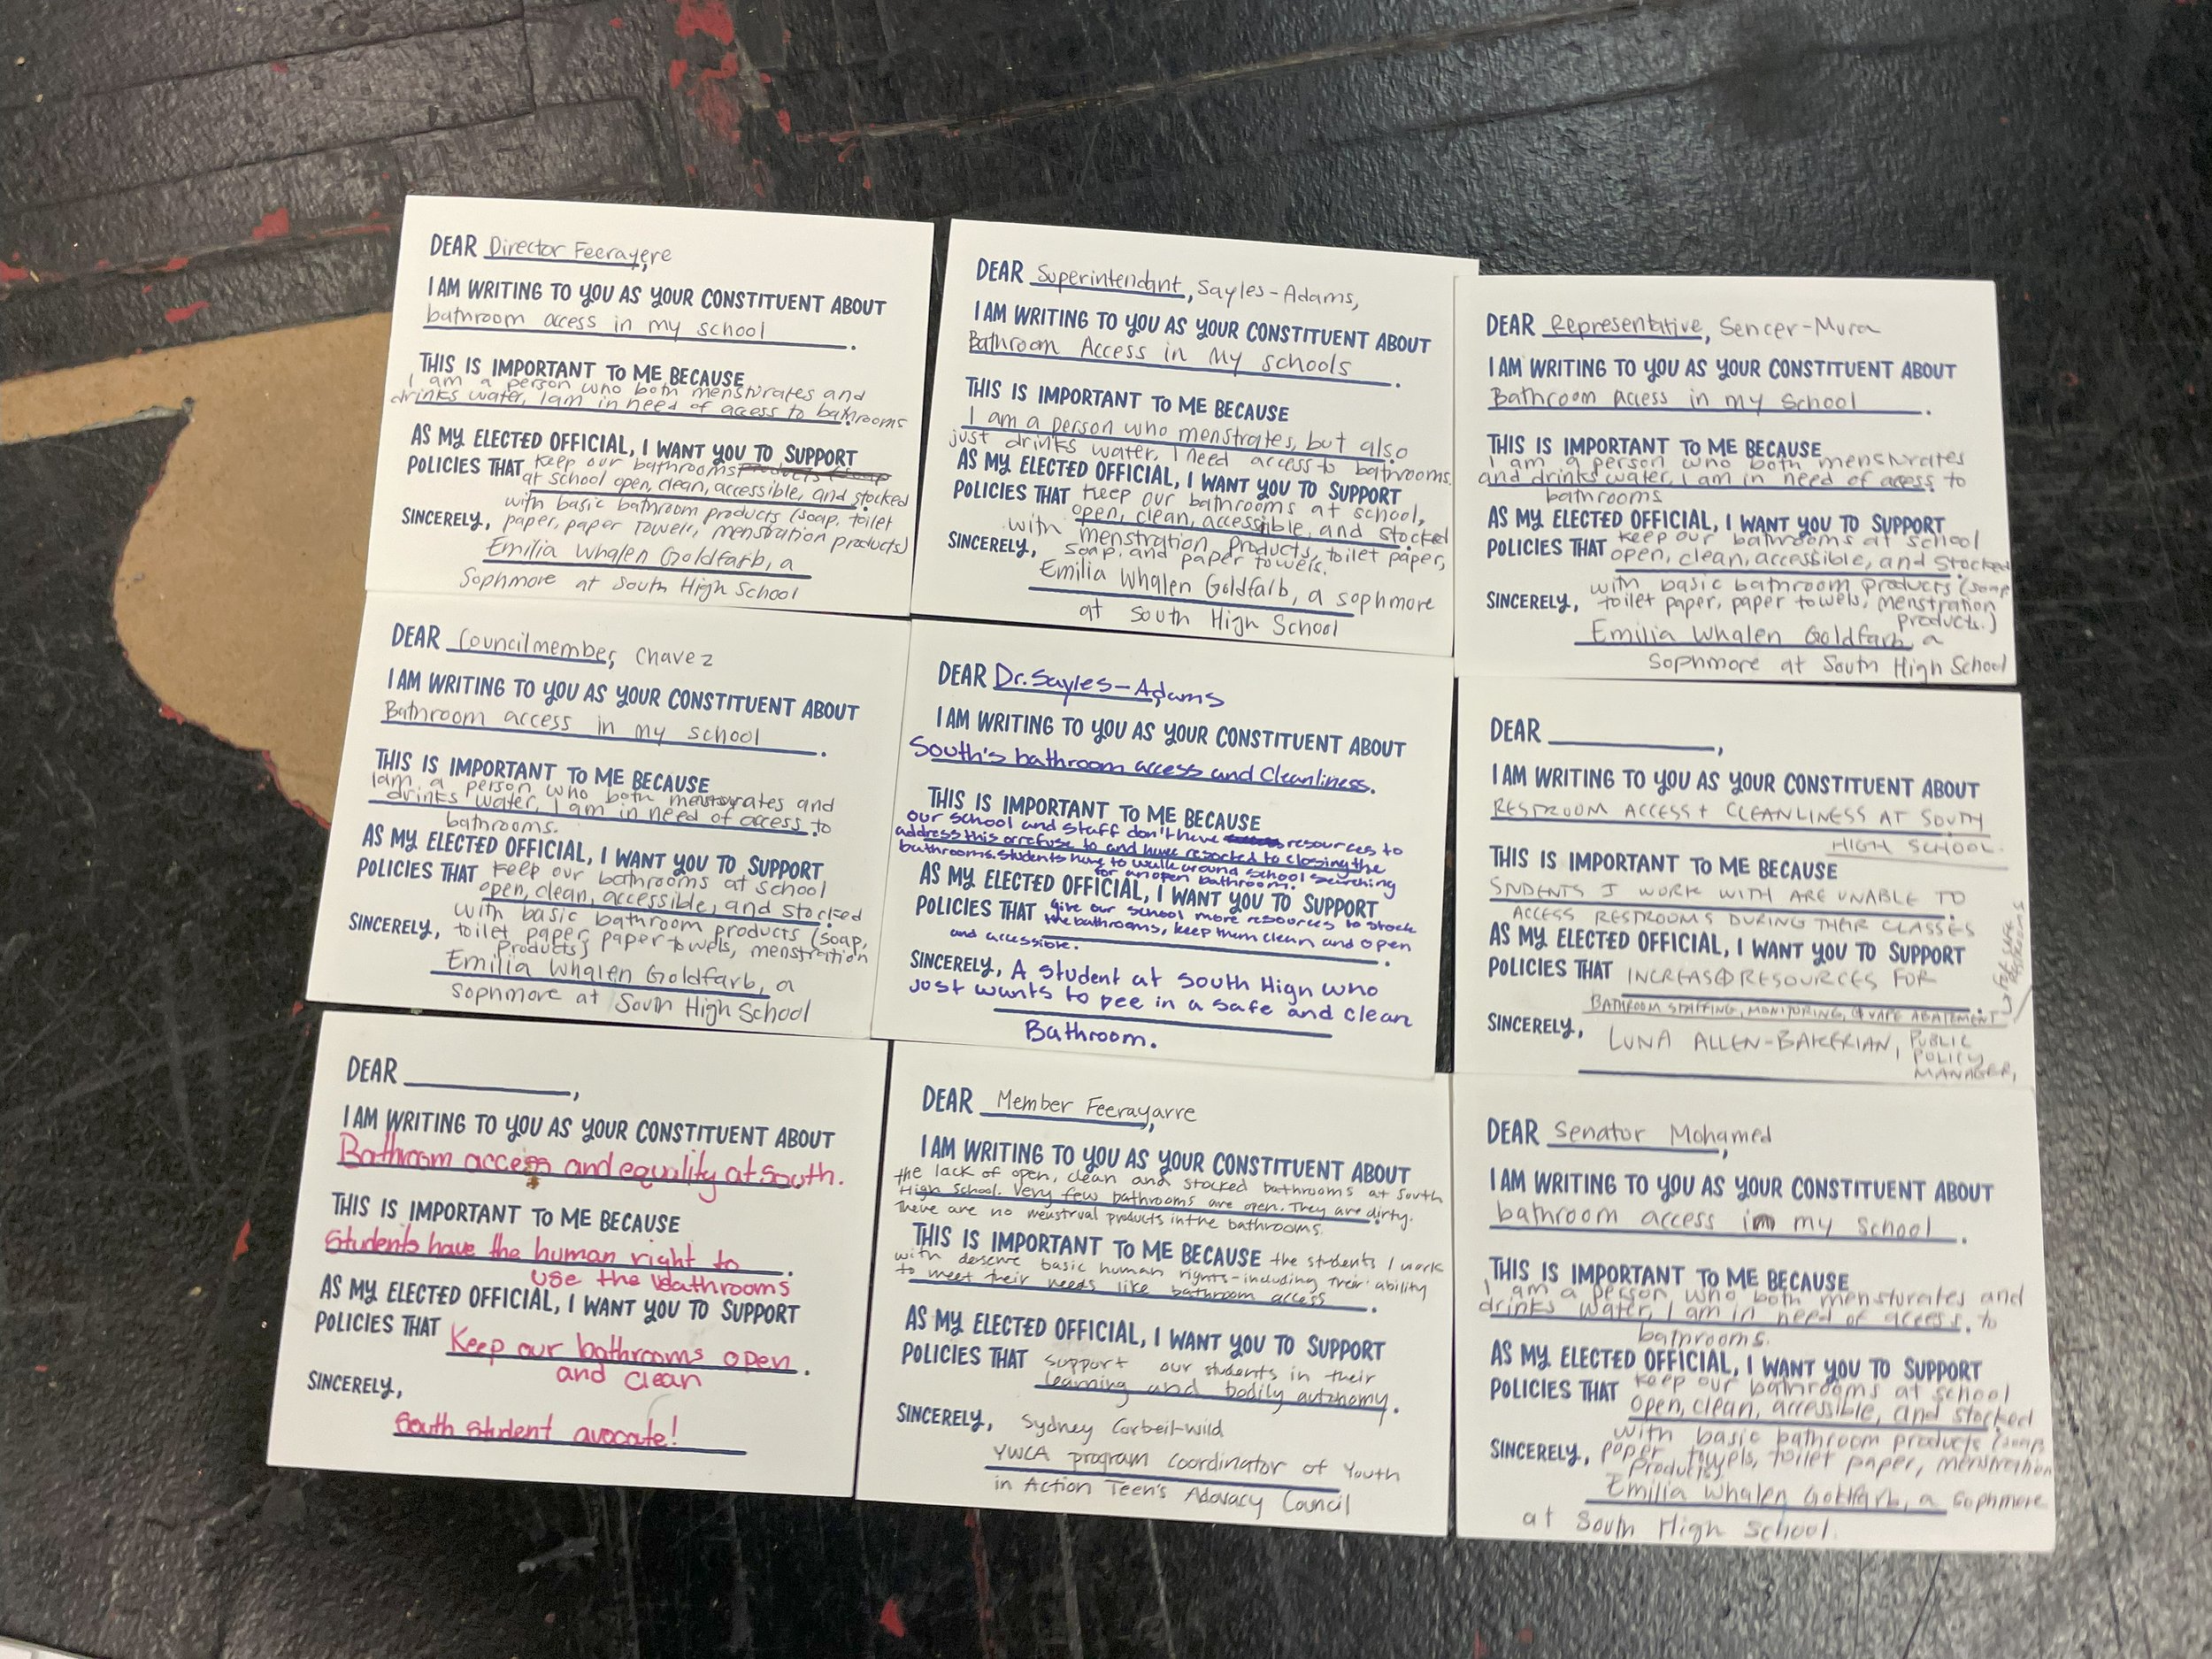 DEAR Director Feerayere,
I AM WRITING TO YOU AS YOUR CONSTITUENT ABOUT
bathroom access in my school.
THIS IS IMPORTANT TO ME BECAUSE
I am a person who both mensturates and
drinks water, I am in need of access to bathrooms.
AS MY ELECTED OFFICIAL, I WANT YOU TO SUPPORT
POLICIES THAT keep our bathrooms
at school open, clean, accessible, and stocked
with basic bathroom products (soap, toilet
SINCERELY, paper, paper towels, menstration products)
Emilia Whalen Goldfarb, a
Sophmore at South High School
DEAR Superintendant, Sayles-Adams,
I AM WRITING TO YOU AS YOUR CONSTITUENT ABOUT
Bathroom Access in my schools.
THIS IS IMPORTANT TO ME BECAUSE
I am a person who menstrates, but also
just drinks water, I need access to bathrooms.
AS MY ELECTED OFFICIAL, I WANT YOU TO SUPPORT
POLICIES THAT keep our bathrooms at school,
open, clean, accessible, and stocked
with menstration products, toilet paper,
SINCERELY, soap, and paper towels.
Emilia Whalen Goldfarb, a sophmore
at South High School
DEAR Representative, Sencer-Mura
I AM WRITING TO YOU AS YOUR CONSTITUENT ABOUT
Bathroom Access in my school.
THIS IS IMPORTANT TO ME BECAUSE
I am a person who both mensturates
and drinks water, I am in need of access to
bathrooms
AS MY ELECTED OFFICIAL, I WANT YOU TO SUPPORT
POLICIES THAT keep our bathrooms at school
open, clean, accessible, and stocked
with basic bathroom products (soap
SINCERELY, toilet paper, paper towels, menstration
products.)
Emilia Whalen Goldfarb, a
Sophmore at South High School
DEAR Councilmember, Chavez
I AM WRITING TO YOU AS YOUR CONSTITUENT ABOUT
Bathroom access in my school.
THIS IS IMPORTANT TO ME BECAUSE
I am a person who both and
drinks water, I am in need of access to
bathrooms.
AS MY ELECTED OFFICIAL, I WANT YOU TO SUPPORT
POLICIES THAT keep our bathrooms at school
open, clean, accessible, and stocked
with basic bathroom products (soap,
SINCERELY, toilet paper, paper towels, menstration
products)
Emilia Whalen Goldfarb, a
Sophmore at South High School
DEAR Dr. Sayles-Adams,
I AM WRITING TO YOU AS YOUR CONSTITUENT ABOUT
South's bathroom access and Cleanliness.
THIS IS IMPORTANT TO ME BECAUSE
our school and staff don't have resources to
address this or refuse to and have resorted to closing the
bathrooms. Students have to walk around school searching
for an open bathroom.
AS MY ELECTED OFFICIAL, I WANT YOU TO SUPPORT
POLICIES THAT give our school more resources to stock
the bathrooms, keep them clean and open
and accessible.
SINCERELY, A student at South High who
just wants to pee in a safe and clean
Bathroom.
DEAR ,
I AM WRITING TO YOU AS YOUR CONSTITUENT ABOUT
RESTROOM ACCESS + CLEANLINESS AT SOUTH
HIGH SCHOOL.
THIS IS IMPORTANT TO ME BECAUSE
STUDENTS I WORK WITH ARE UNABLE TO
ACCESS RESTROOMS DURING THEIR CLASSES
AS MY ELECTED OFFICIAL, I WANT YOU TO SUPPORT
POLICIES THAT INCREASE RESOURCES FOR
BATHROOM STAFFING, MONITORING, & VAPE ABATEMENT
SINCERELY, LUNA ALLEN-BAKERIAN, PUBLIC
POLICY
MANAGER,
DEAR ,
I AM WRITING TO YOU AS YOUR CONSTITUENT ABOUT
Bathroom access and equality at South.
THIS IS IMPORTANT TO ME BECAUSE
Students have the human right to
use the bathrooms.
AS MY ELECTED OFFICIAL, I WANT YOU TO SUPPORT
POLICIES THAT
Keep our bathrooms open
and clean.
SINCERELY,
South student avocate!
DEAR Member Feerayarre,
I AM WRITING TO YOU AS YOUR CONSTITUENT ABOUT
the lack of open, clean and stocked bathrooms at South
High School. Very few bathrooms are open. They are dirty.
There are no menstrual products in the bathrooms.
THIS IS IMPORTANT TO ME BECAUSE the students I work
with deserve basic human rights-including their ability
to meet their needs like bathroom access.
AS MY ELECTED OFFICIAL, I WANT YOU TO SUPPORT
POLICIES THAT support our students in their
learning and bodily autonomy.
SINCERELY, Sydney Corbeil-Wild
YWCA program coordinator of Youth
in Action Teen's Adovacy Council
DEAR Senator Mohamed,
I AM WRITING TO YOU AS YOUR CONSTITUENT ABOUT
bathroom access in my school.
THIS IS IMPORTANT TO ME BECAUSE
I am a person who both mensturates and
drinks water, I am in need of access to
bathrooms.
AS MY ELECTED OFFICIAL, I WANT YOU TO SUPPORT
POLICIES THAT keep our bathrooms at school
open, clean, accessible, and stocked
with basic bathroom products (soap
SINCERELY, paper towels, toilet paper, menstration
products)
Emilia Whalen Goldfarb, a Sophmore
at South High School.